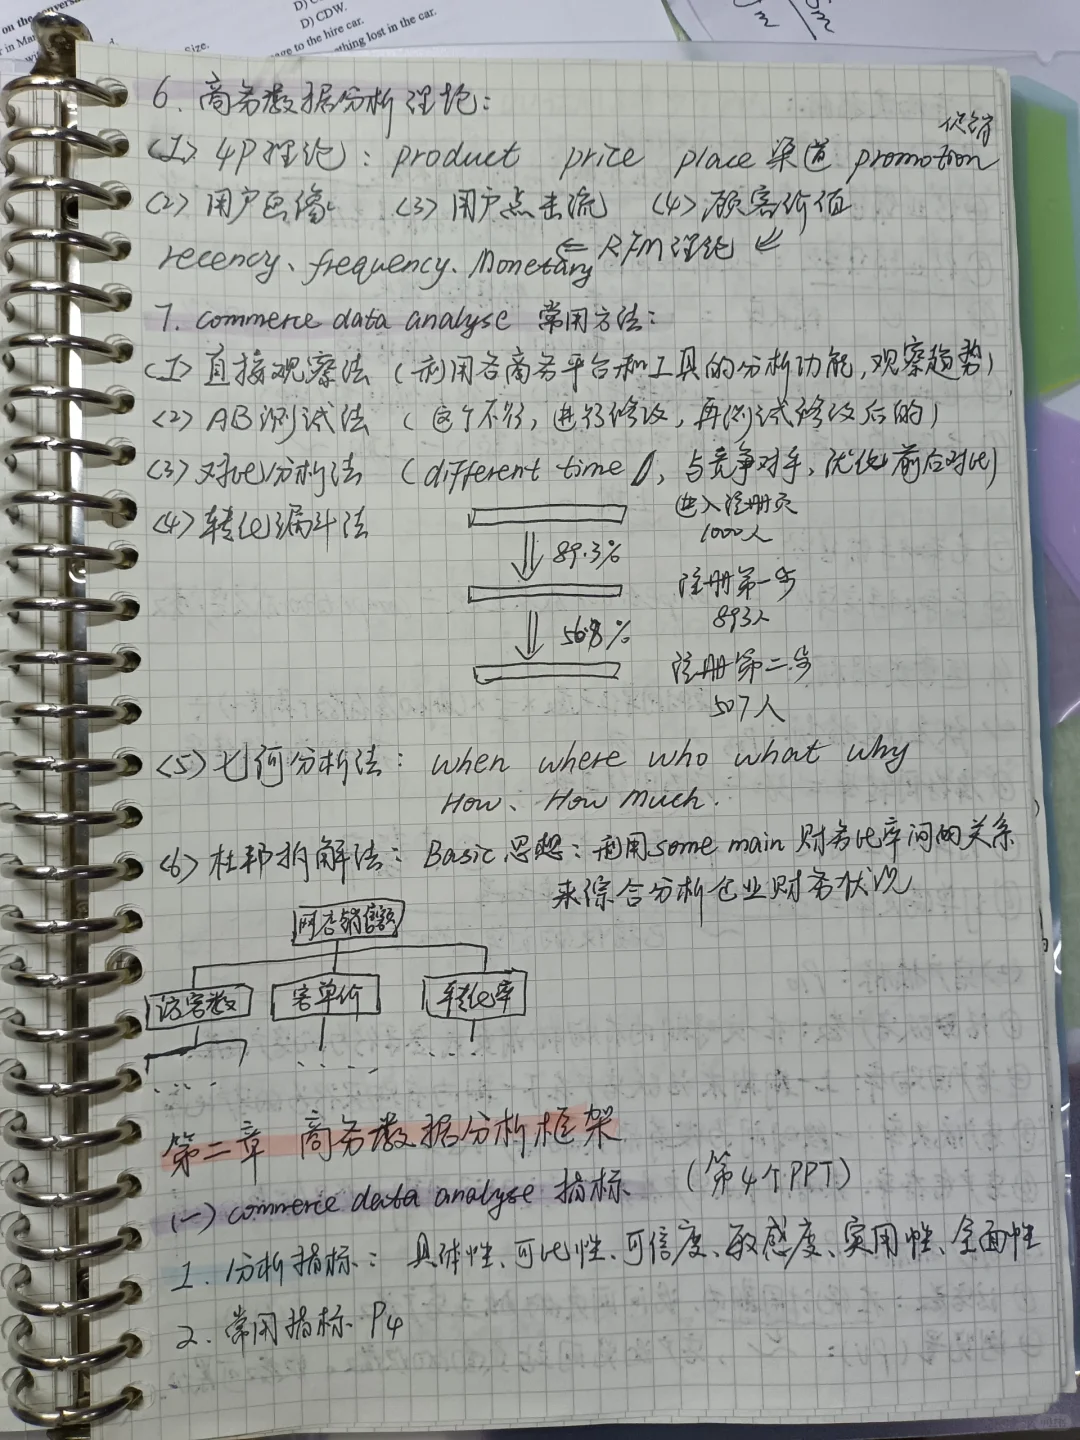 D) CDW.
ge to the hire car.
ething lost in the car.
6. 商务数据分析理论：
促销
(1) 4P理论：product price place 渠道 promotion
(2) 用户画像 (3) 用户点击流 (4) 顾客价值
recency、frequency、Monetary ⇐ RFM理论 ⇙
7. commerce data analyse 常用方法：
(1) 直接观察法 (利用各商务平台和工具的分析功能,观察趋势)
(2) AB测试法 (这个不行,进行修改,再测试修改后的)
(3) 对比分析法 (different time , 与竞争对手, 优化前后对比)
(4) 转化漏斗法
进入注册页
1000人
89.3%
注册第一步
893人
56.8%
注册第二步
507人
(5) 七何分析法：when where who what why
How、How much.
(6) 杜邦拆解法：Basic 思想：利用some main 财务比率间的关系
来综合分析企业财务状况
网店销售额
访客数 客单价 转化率
.... .... ....
第二章 商务数据分析框架
(一) commerce data analyse 指标 (第4个PPT)
1. 分析指标：具体性、可比性、可信度、敏感度、实用性、全面性
2. 常用指标 P4